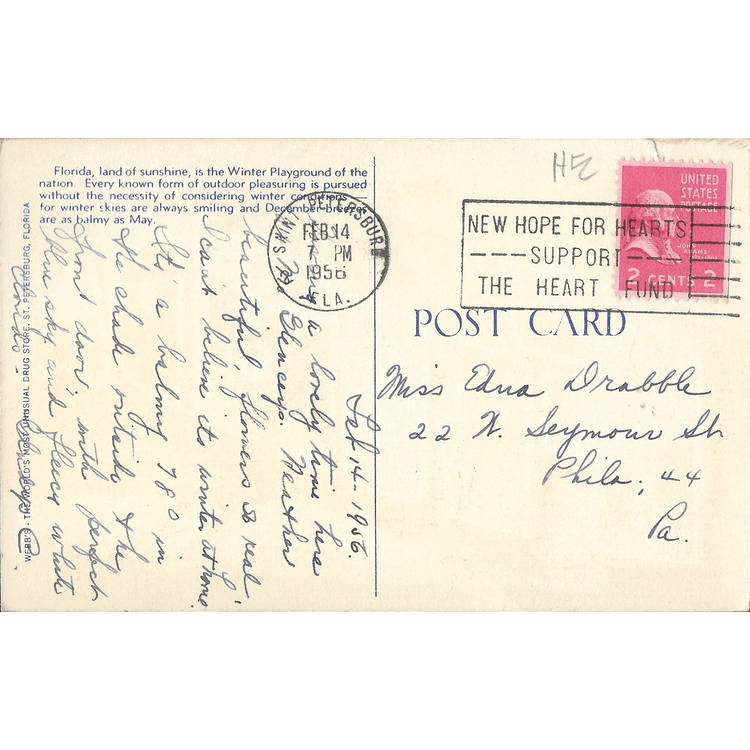 Florida, land of sunshine, is the Winter Playground of the
nation. Every known form of outdoor pleasuring is pursued
without the necessity of considering winter conditions
for winter skies are always smiling and December breezes
are as balmy as May.
WEBB'S - THE WORLD'S MOST UNUSUAL DRUG STORE, ST. PETERSBURG, FLORIDA
Feb 14-1956.
a lovely time here
Weather
beautiful, flowers so real
I can't believe its winter at home.
It's a balmy 78° in
the shade outside the
front door, with perfect
blue sky and fleecy white
clouds.
ST. PETERSBURG
FEB 14
7 PM
1956
FLA.
HE
NEW HOPE FOR HEARTS
SUPPORT
THE HEART FUND
UNITED
STATES
POSTAGE
JOHN
ADAMS
2 CENTS 2
POST CARD
Miss Edna Drabble
22 W. Seymour St
Phila, 44
Pa.